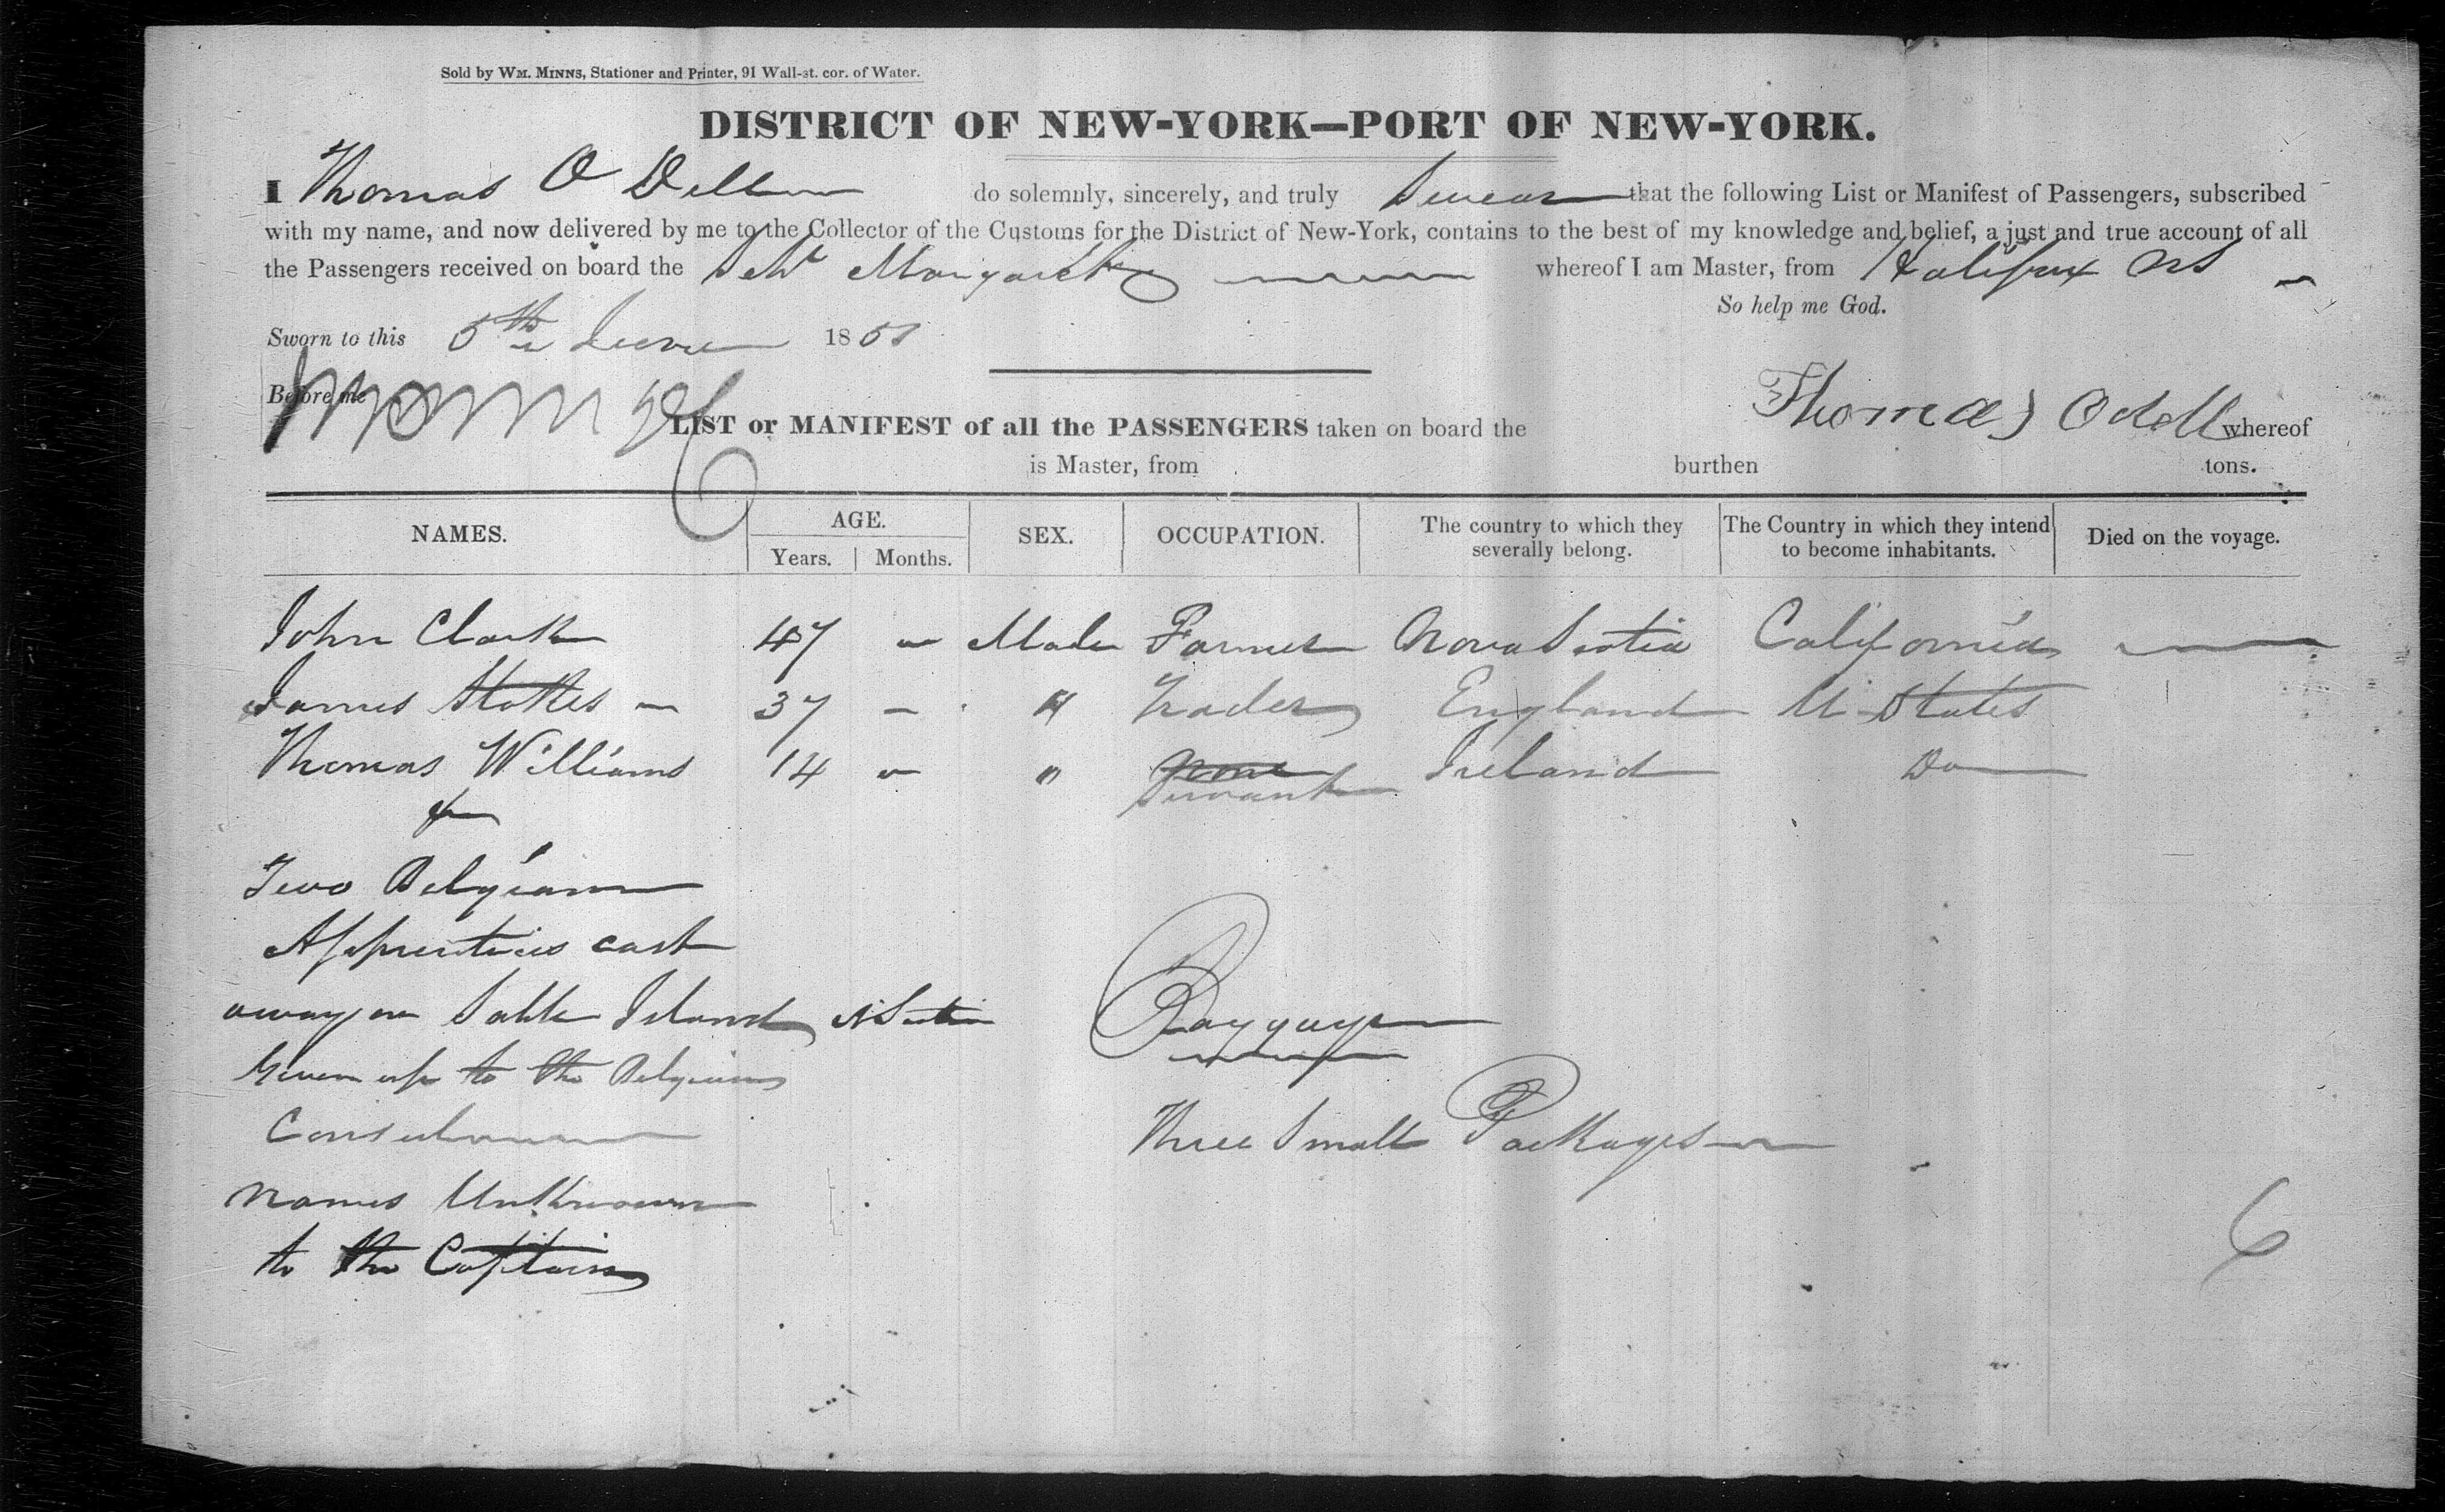 Sold by WM. MINNS, Stationer and Printer, 91 Wall-st. cor. of Water.
DISTRICT OF NEW-YORK—PORT OF NEW-YORK.
I Thomas O Dell do solemnly, sincerely, and truly Swear that the following List or Manifest of Passengers, subscribed
with my name, and now delivered by me to the Collector of the Customs for the District of New-York, contains to the best of my knowledge and belief, a just and true account of all
the Passengers received on board the Schr Margaret whereof I am Master, from Halifax NS
So help me God.
Sworn to this 5th 1851
Before me
Thomas Odell
LIST or MANIFEST of all the PASSENGERS taken on board the whereof
is Master, from burthen tons.
NAMES. AGE. Years. Months. SEX. OCCUPATION. The country to which they severally belong. The Country in which they intend to become inhabitants. Died on the voyage.
John Clark 47 – Male Farmer Nova Scotia California
James Stokes 37 – " Trader England U States
Thomas Williams 14 – " None Ireland Do
Servant
Two Belgian
Apprentices cast
away on Sable Island N Scotia
Given up to the Belgian
Consul
Names Unknown
to the Captain
Baggage
Three Small Packages
6